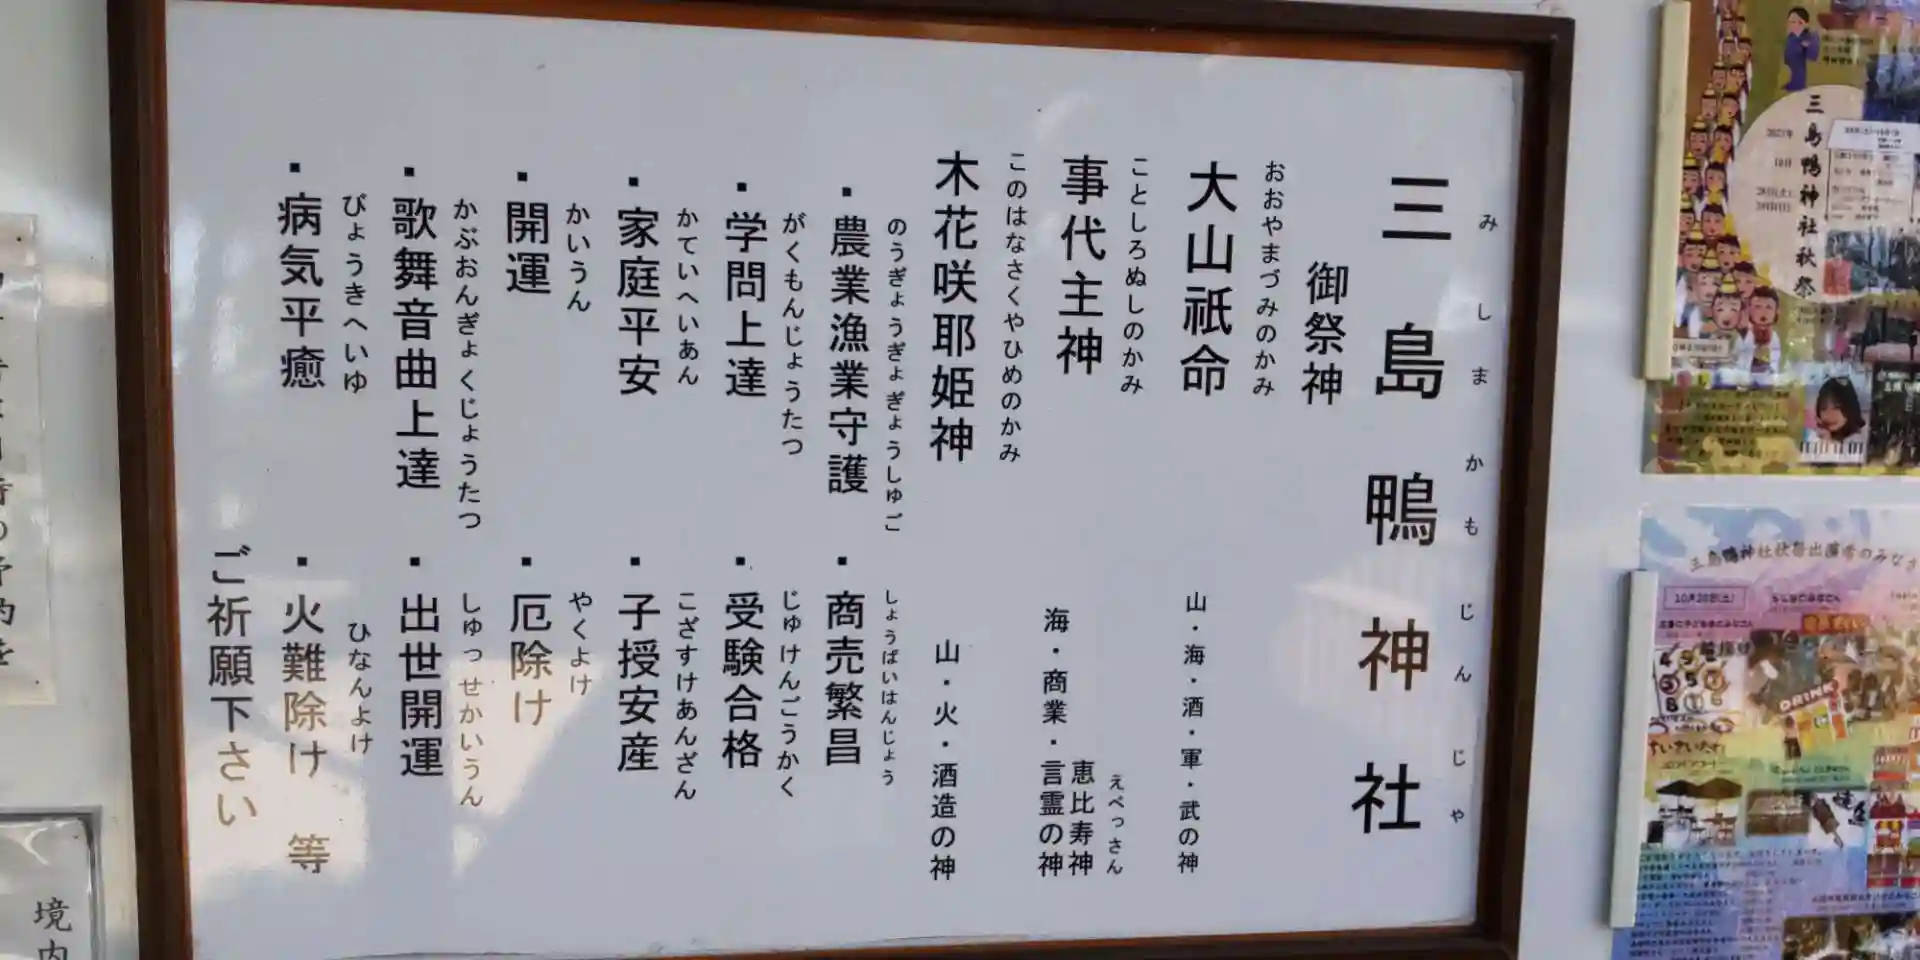 みしまかもじんじゃ
三島鴨神社
御祭神
おおやまづみのかみ
大山祇命
山・海・酒・軍・武の神
ことしろぬしのかみ
事代主神
えべっさん
恵比寿神
海・商業・言霊の神
このはなさくやひめのかみ
木花咲耶姫神
山・火・酒造の神
のうぎょうぎょぎょうしゅご
・農業漁業守護
しょうばいはんじょう
・商売繁昌
がくもんじょうたつ
・学問上達
じゅけんごうかく
・受験合格
かていへいあん
・家庭平安
こざずけあんざん
・子授安産
かいうん
・開運
やくよけ
・厄除け
かぶおんぎょくじょうたつ
・歌舞音曲上達
しゅっせかいうん
・出世開運
びょうきへいゆ
・病気平癒
ひなんよけ
・火難除け 等
ご祈願下さい
三島鴨神社秋祭
三島鴨神社秋祭出演者のみなさ
10月28日(土)
DRINK
境内